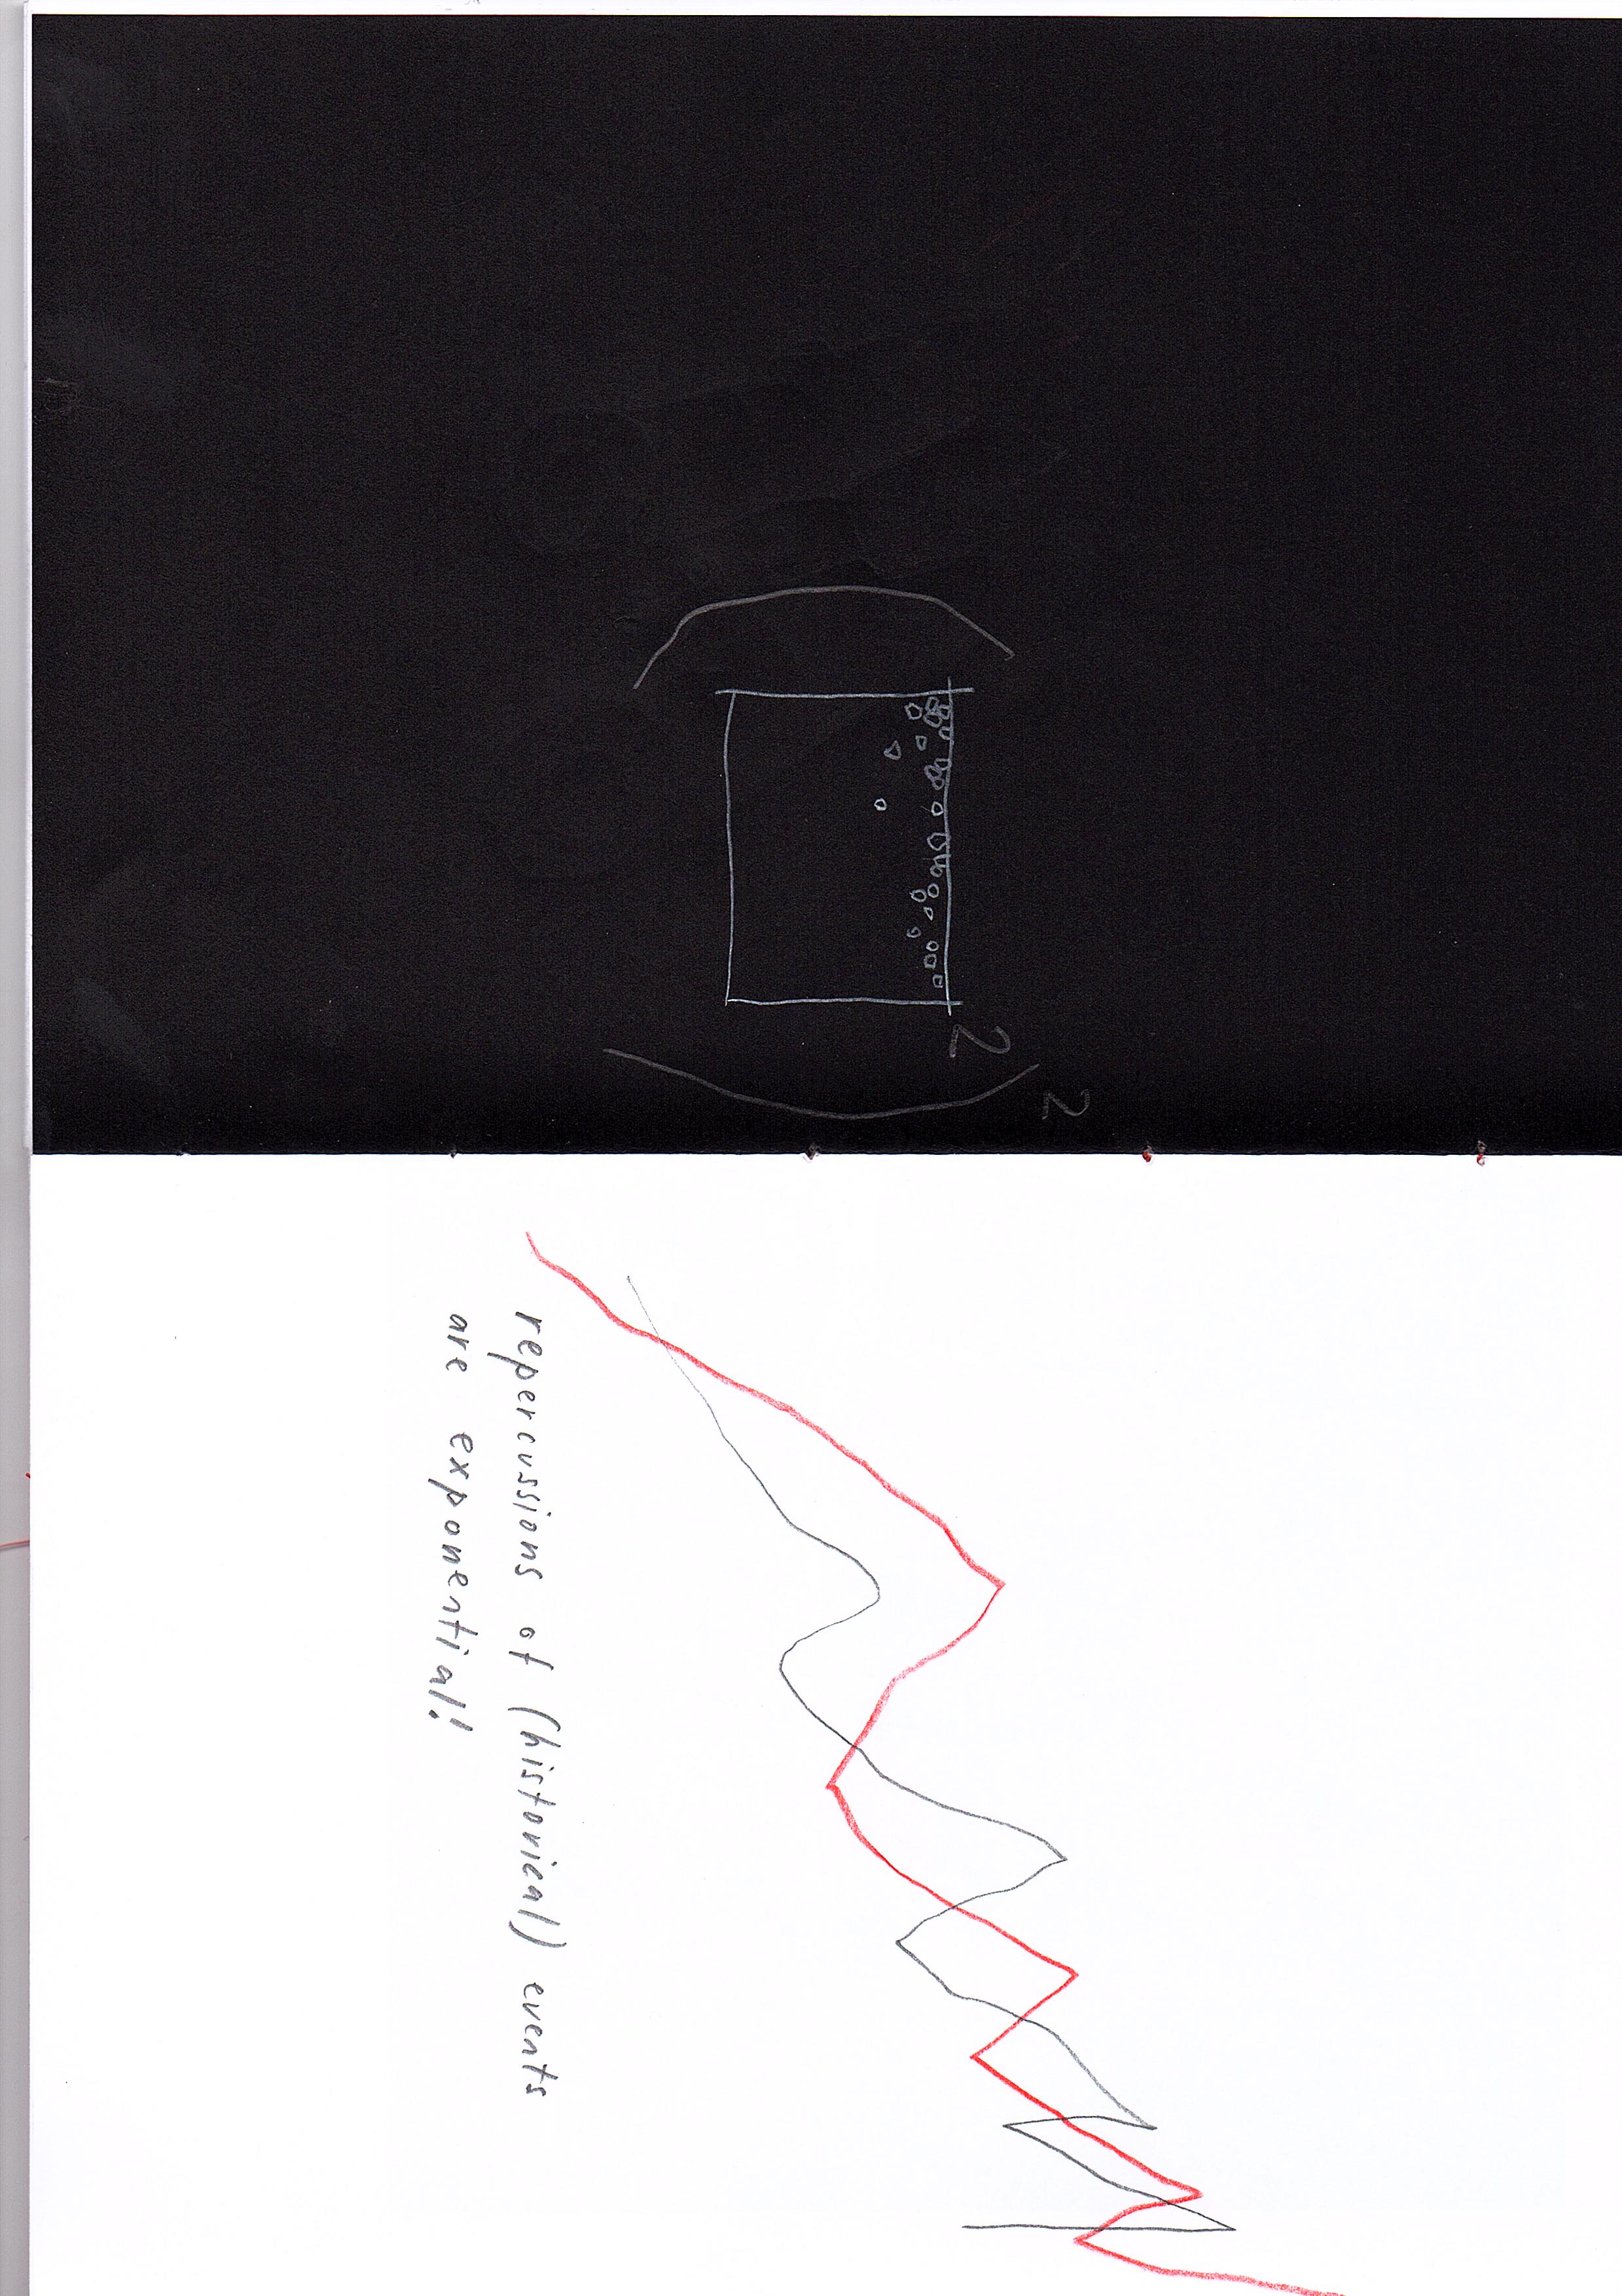 2
2
repercussions of (historical) events
are exponential!